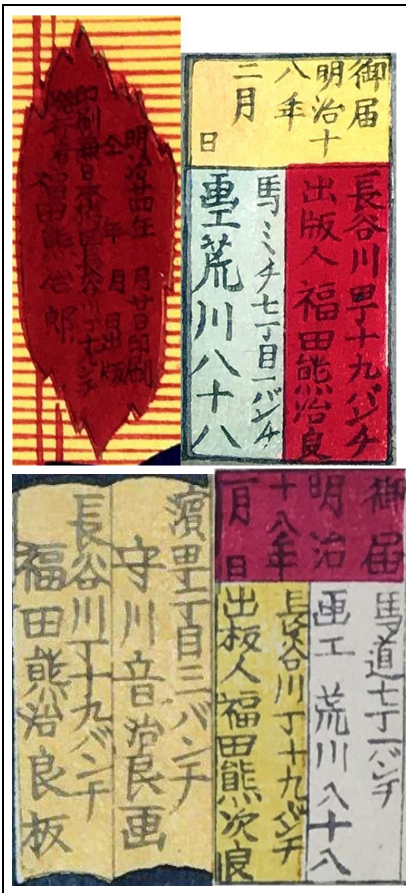 明治廿四年 月廿日印刷
仝 年 月 日出版
印刷兼日本橋区長谷川丁十九バンチ
福田熊治郎
御届
明治十
八年
二月
日
長谷川町十九バンチ
出版人 福田熊治良
馬ミチ七丁目一バンチ
画工荒川八十八
濱町一丁目三バンチ
守川音治良画
長谷川丁十九バンチ
福田熊治良板
御届
明治
十八年
一月 日
馬道七丁一バンチ
画工 荒川八十八
長谷川丁十九バンチ
出板人 福田熊次良